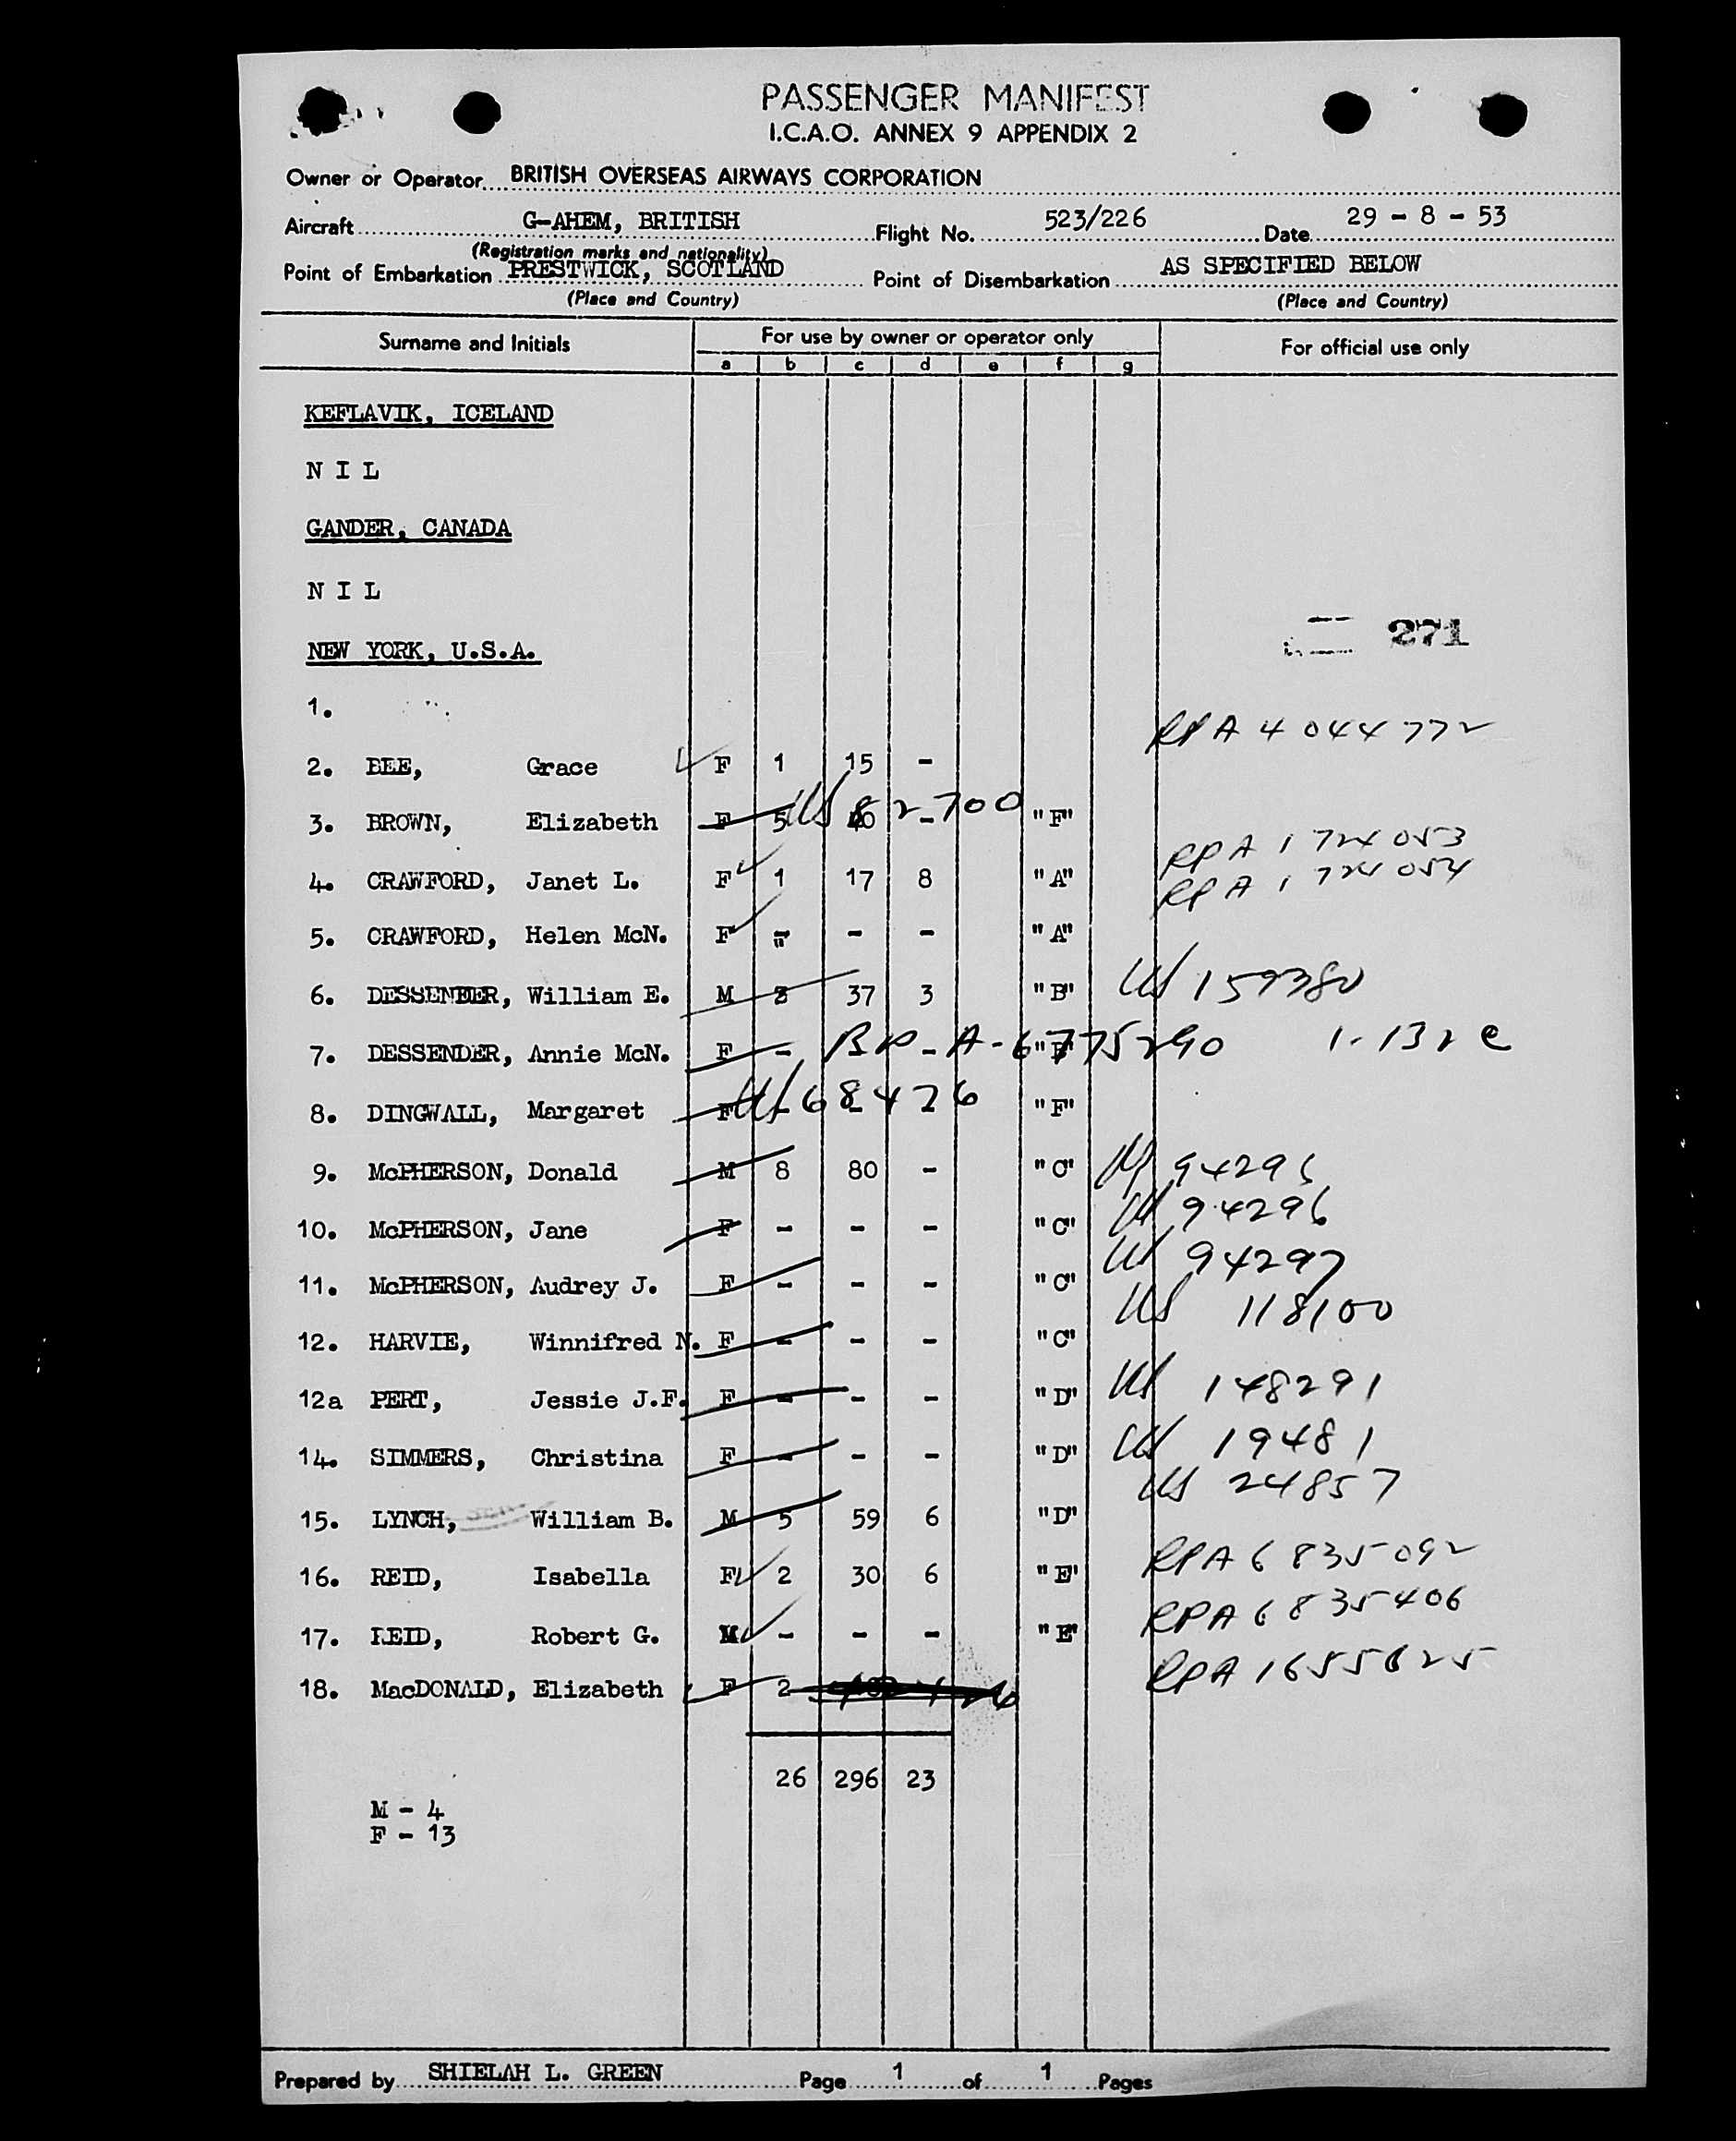 PASSENGER MANIFEST
I.C.A.O. ANNEX 9 APPENDIX 2
Owner or Operator BRITISH OVERSEAS AIRWAYS CORPORATION
Aircraft G-AHEM, BRITISH Flight No. 523/226 Date 29 - 8 - 53
(Registration marks and nationality)
Point of Embarkation PRESTWICK, SCOTLAND Point of Disembarkation AS SPECIFIED BELOW
(Place and Country) (Place and Country)
Surname and Initials For use by owner or operator only For official use only
a b c d e f g
KEFLAVIK, ICELAND
N I L
GANDER, CANADA
N I L
271
NEW YORK, U.S.A.
1.
RPA 4044772
2. BEE, Grace F 1 15 -
US 82700
3. BROWN, Elizabeth F 5 40 - "F"
RPA 1724053
4. CRAWFORD, Janet L. F 1 17 8 "A"
RPA 1724054
5. CRAWFORD, Helen McN. F - - - "A"
6. DESSENDER, William E. M 3 37 3 "B" US 159380
7. DESSENDER, Annie McN. F - - "B" BP A-6775290 1-132 e
8. DINGWALL, Margaret F - - - "F" US 68426
9. McPHERSON, Donald M 8 80 - "C" US 94295
10. McPHERSON, Jane F - - - "C" US 94296
11. McPHERSON, Audrey J. F - - - "C" US 94297
12. HARVIE, Winnifred N. F - - - "C" US 118100
12a PERT, Jessie J.F. F - - - "D" US 148291
14. SIMMERS, Christina F - - - "D" US 19481
15. LYNCH, William B. M 5 59 6 "D" US 24857
16. REID, Isabella F 2 30 6 "E" RPA 6835092
17. REID, Robert G. M - - - "E" RPA 6835406
18. MacDONALD, Elizabeth F 2 RPA 1655625
26 296 23
M - 4
F - 13
Prepared by SHIELAH L. GREEN Page 1 of 1 Pages